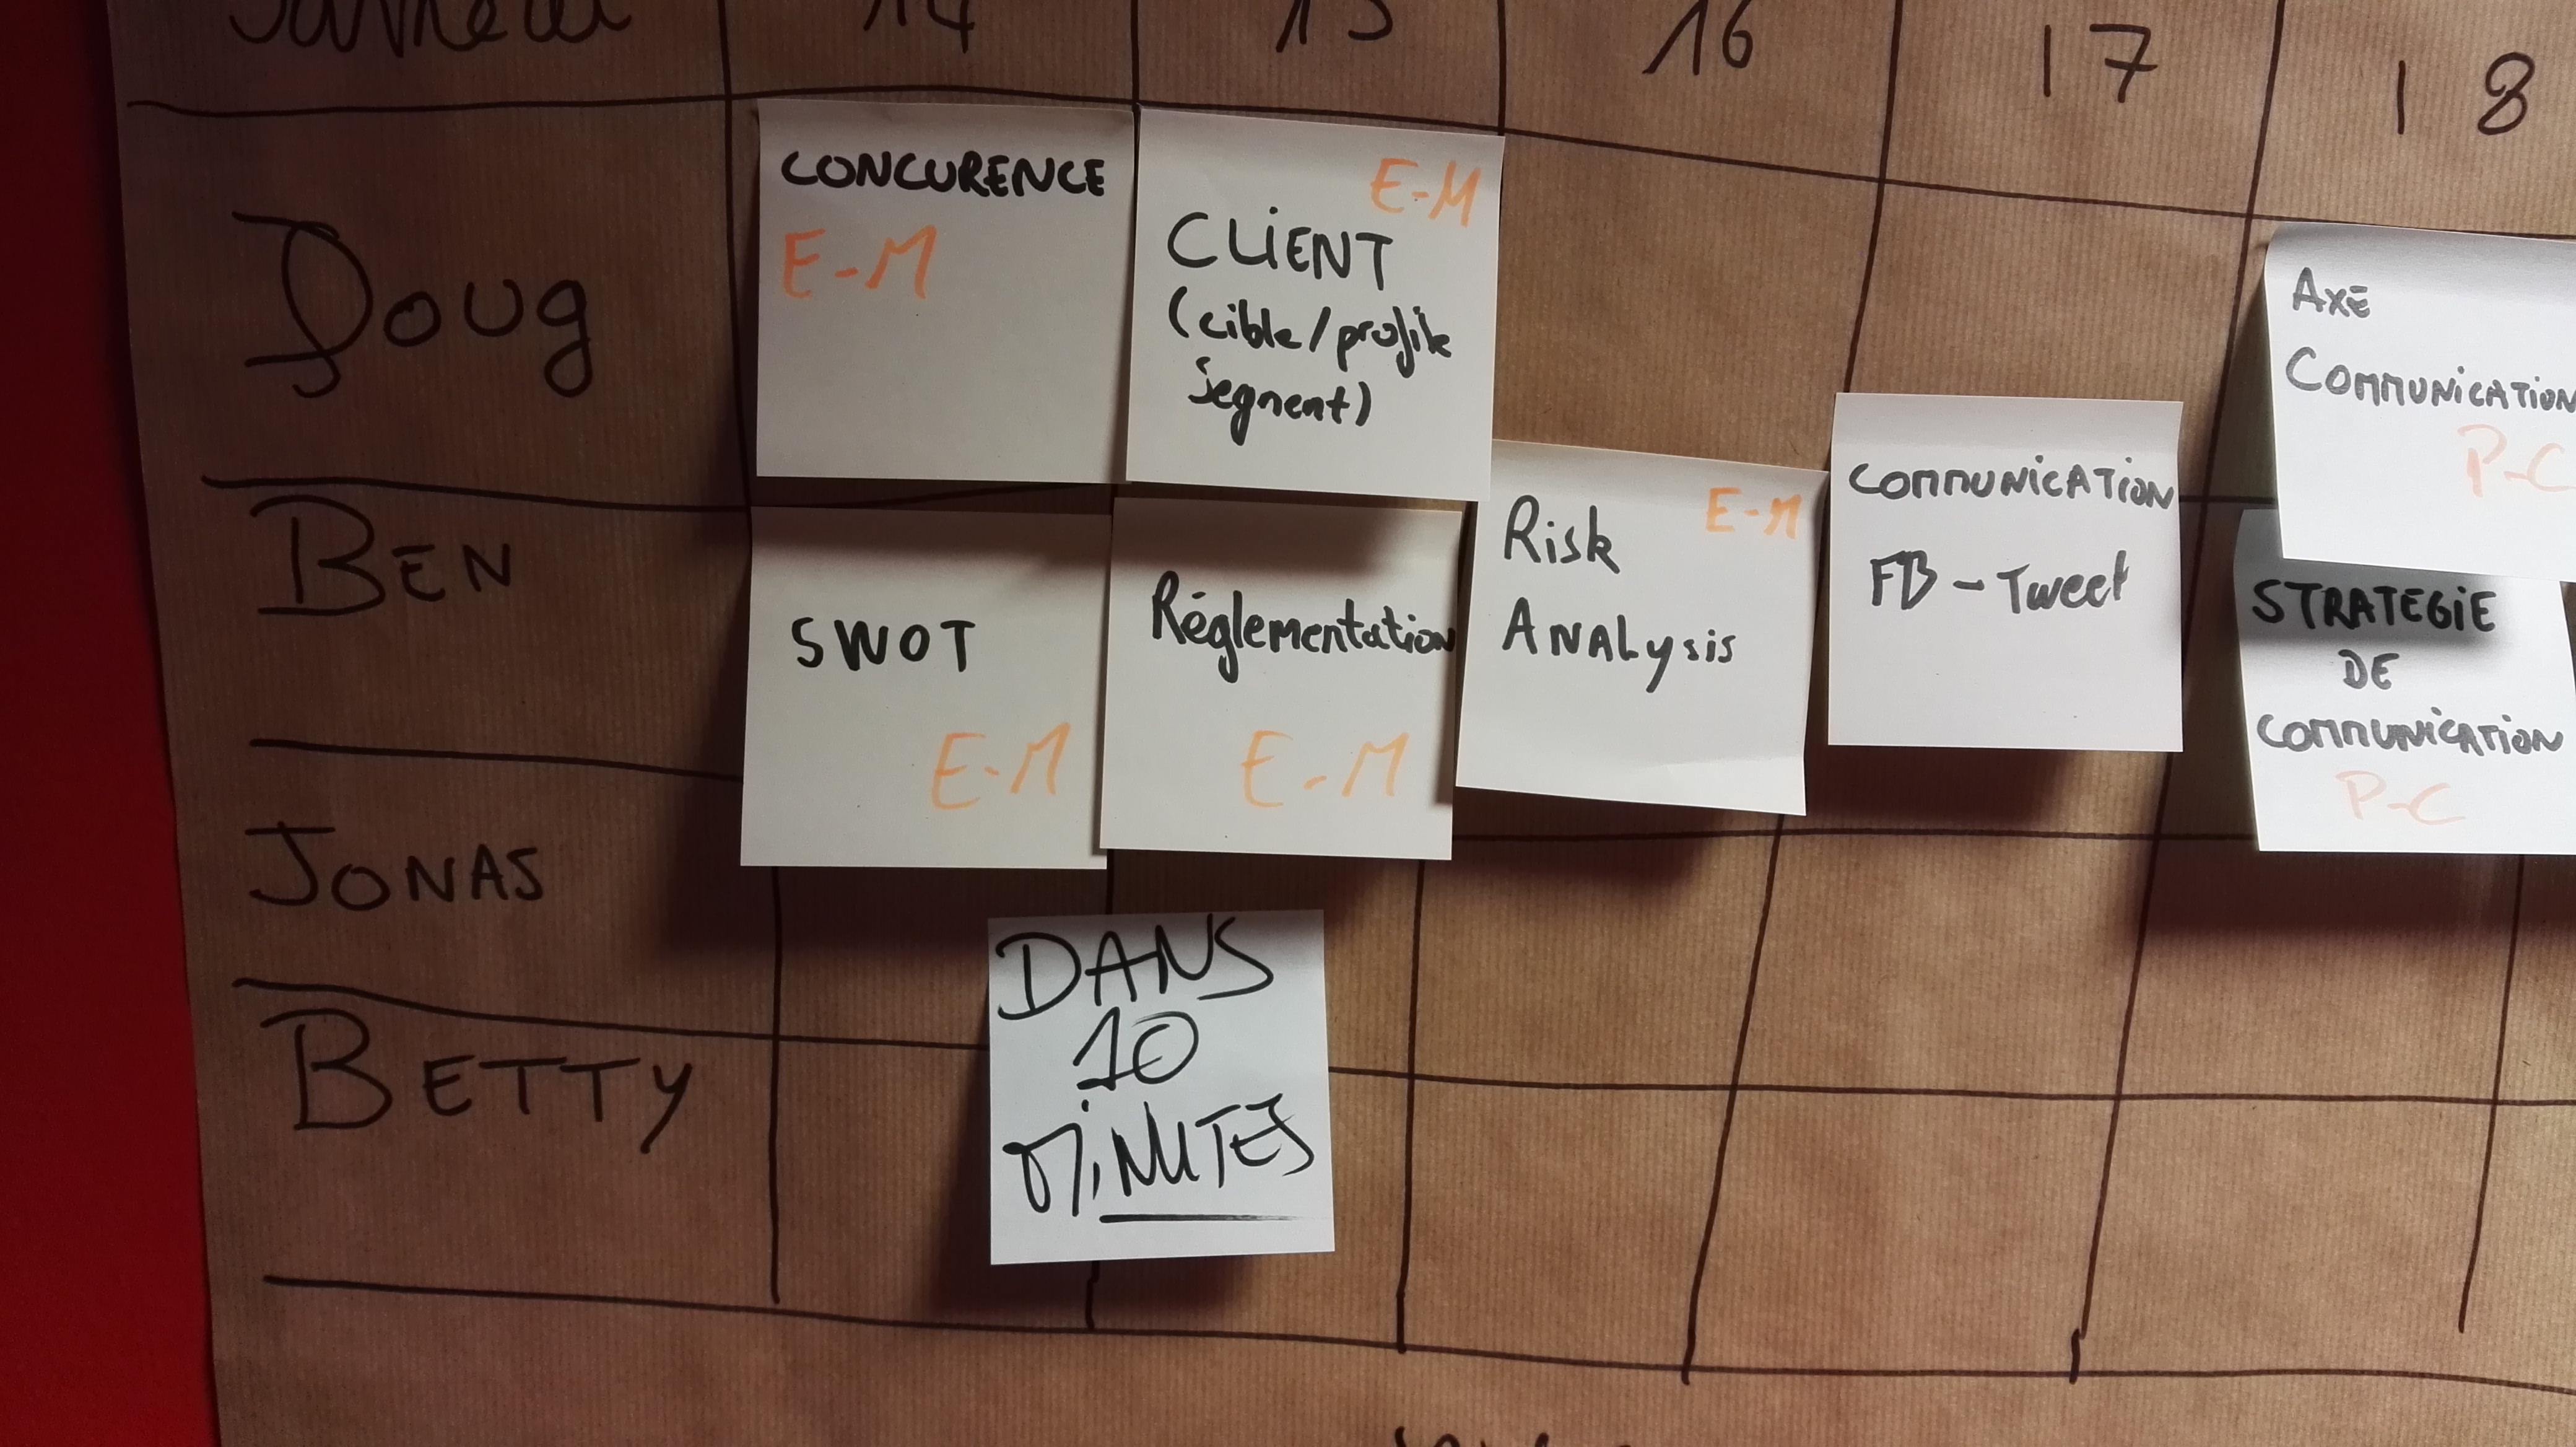 Samedi 14 15 16 17 18
Doug
CONCURENCE
E-M
E-M
CLIENT
(cible/profile
segment)
AXE
COMMUNICATION
P-C
BEN
SWOT
E-M
Réglementation
E-M
E-M
Risk
ANALysis
COMMUNICATION
FB - Tweet
STRATEGIE
DE
COMMUNICATION
P-C
JONAS
DANS
10
MINUTES
BETTY